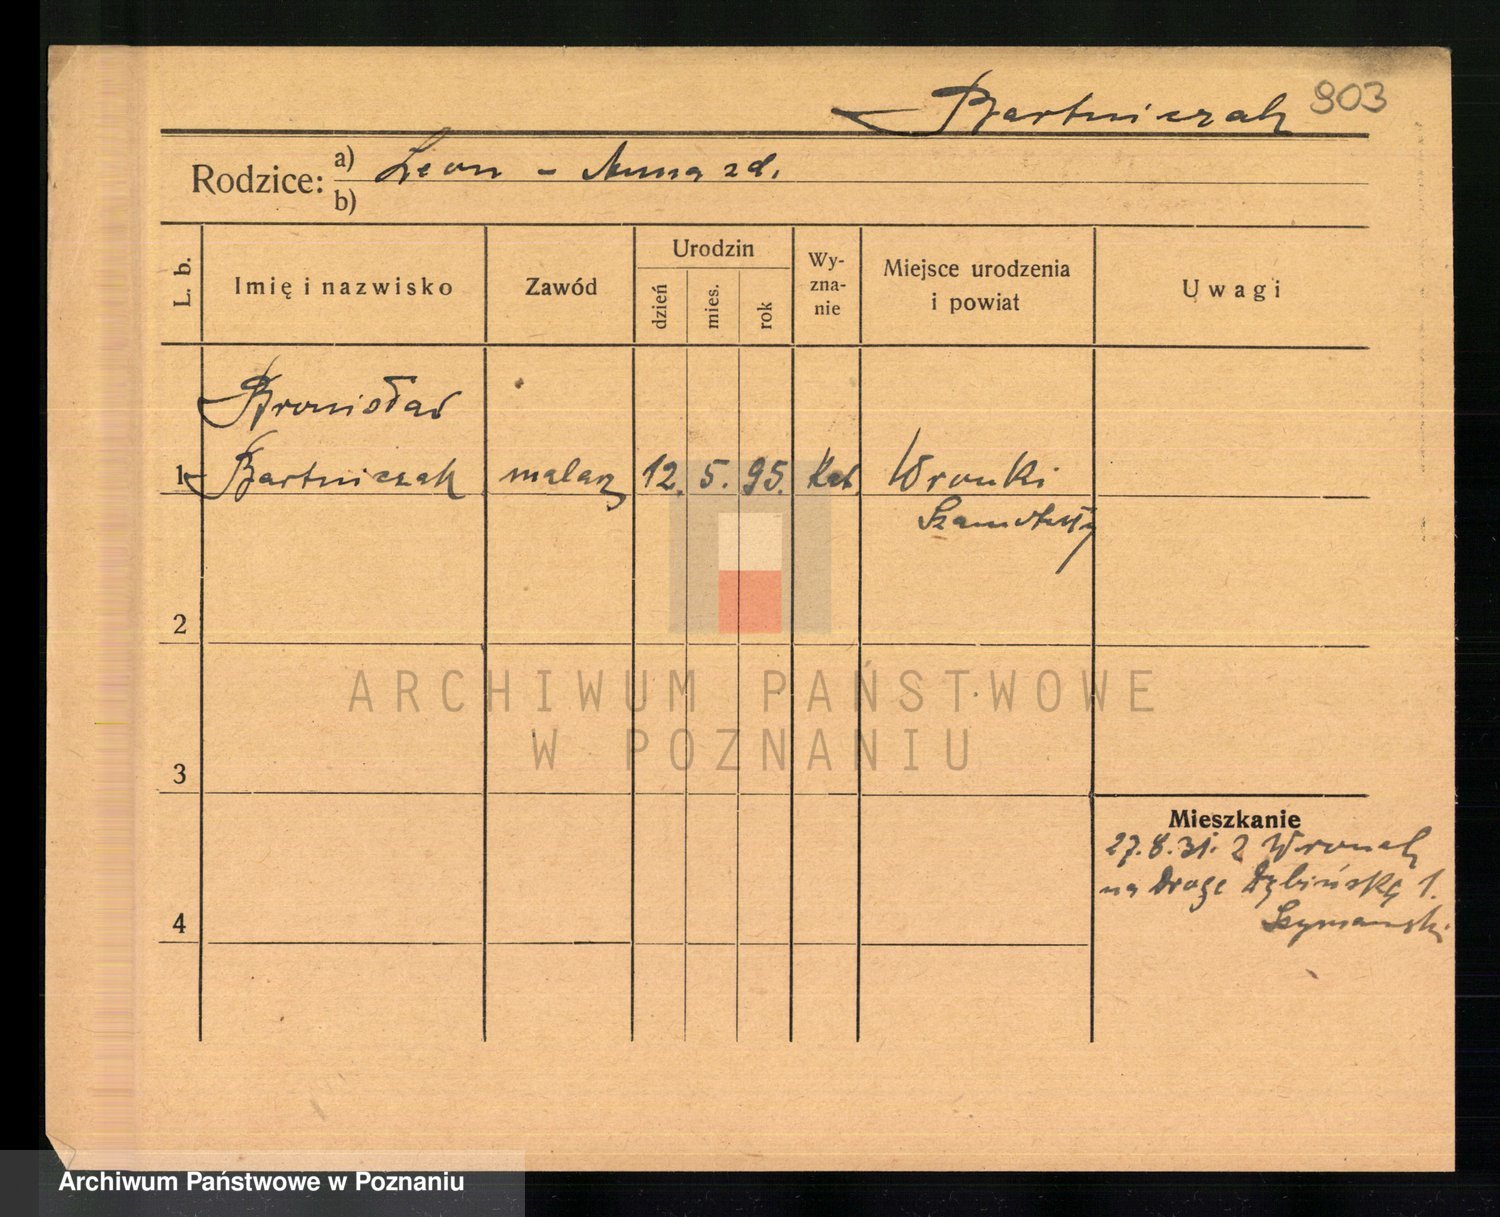 Bartniczak 903
Rodzice: a) Leon - Anna zd.
b)
L. b. Imię i nazwisko Zawód Urodzin Wy-zna-nie Miejsce urodzenia i powiat Uwagi
dzień mies. rok
Bronisław
1 Bartniczak malarz 12. 5. 95. Kat. Wronki
Szamotuły
2
ARCHIWUM PAŃSTWOWE
W POZNANIU
3
Mieszkanie
27.8.31. z Wronek
na Drogę Dębińską 1.
4
Szymański
Archiwum Państwowe w Poznaniu